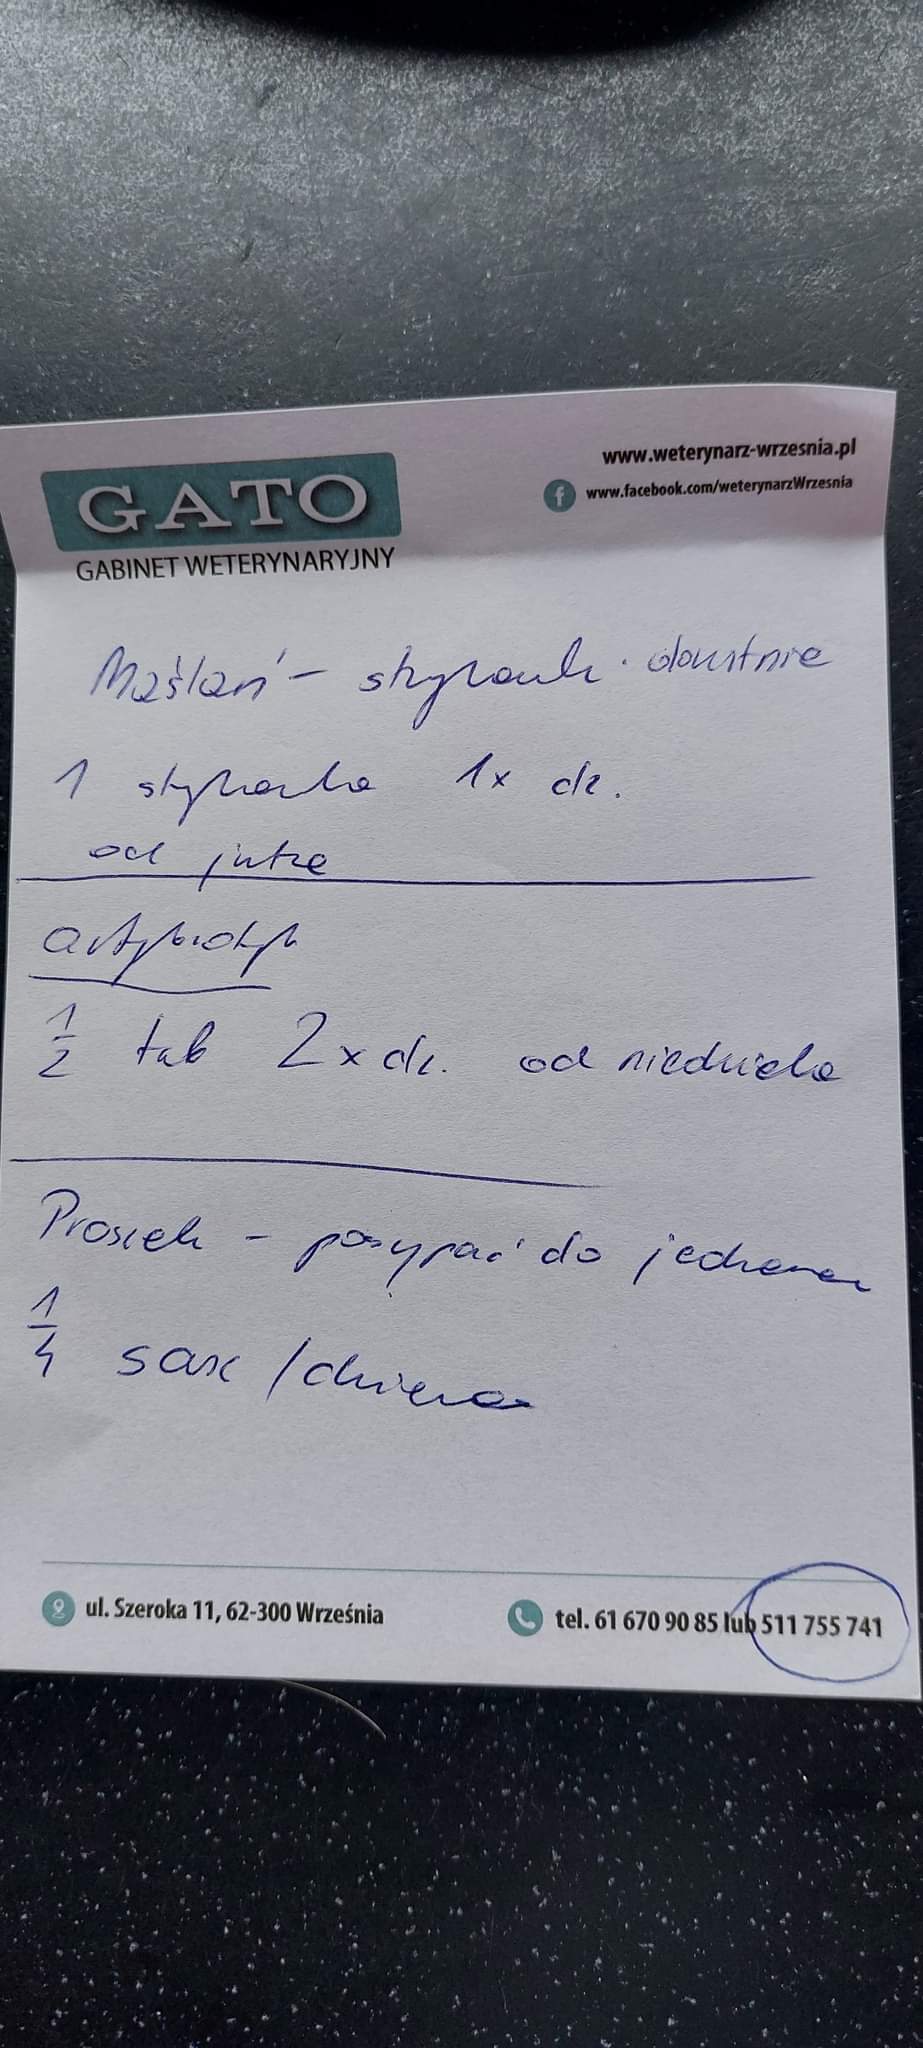 GATO
GABINET WETERYNARYJNY
www.weterynarz-wrzesnia.pl
www.facebook.com/weterynarzWrzesnia
Maślan - strzykawk. doustnie
1 strzykawka 1x dz.
od jutra
antybiotyk
1/2 tab 2x dz. od niedziela
Proszek - posypać do jedzenia
1/4 sasz / dziennie
ul. Szeroka 11, 62-300 Września
tel. 61 670 90 85 lub 511 755 741